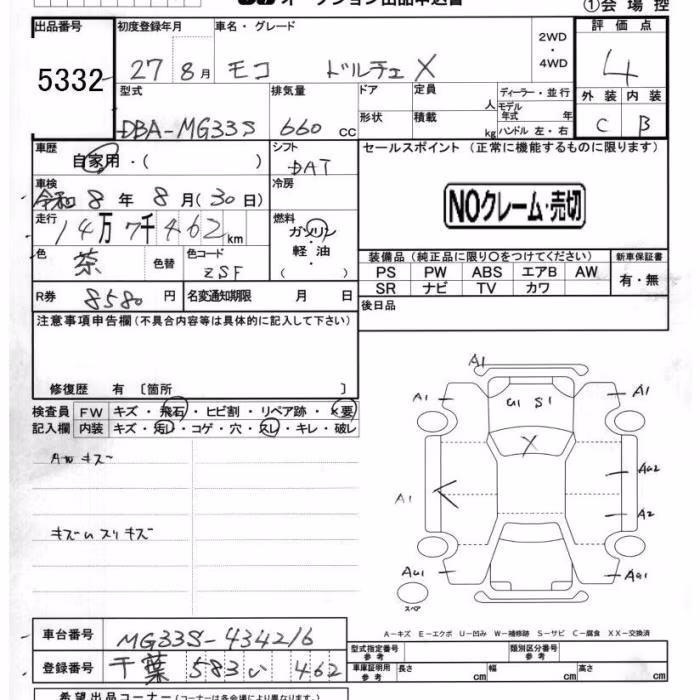 オークション出品申込書 ①会場控
出品番号 初度登録年月 車名・グレード 2WD・4WD 評価点
5332 27 8月 モコ ドルチェX 4
型式 排気量 ドア 定員 人 ディーラー・並行 外装 内装
DBA-MG33S 660 cc 形状 積載 kg モデル年式 年 ハンドル 左・右 C B
車歴 自家用・( ) シフト DAT セールスポイント (正常に機能するものに限ります)
車検 令和8年8月(30日) 冷房
NOクレーム・売切
走行 14万7千462km 燃料 ガソリン・軽油・
色 茶 色替 色コード ZSF
装備品 (純正品に限り○をつけてください) 新車保証書
PS PW ABS エアB AW 有・無
SR ナビ TV カワ
R券 8580円 名変通知期限 月 日 後日品
注意事項申告欄(不具合内容等は具体的に記入して下さい)
修復歴 有 〔箇所 〕
検査員 FW キズ・飛石・ヒビ割・リペア跡・×要
記入欄 内装 キズ・汚レ・コゲ・穴・スレ・キレ・破レ
キズ
キズ スリキズ
A1
A1 G1 S1 A1
X
AU2
A1 A2
AU1 AU1
スペア
A-キズ E-エクボ U-凹み W-補修跡 S-サビ C-腐食 XX-交換済
車台番号 MG33S-434216
型式指定番号 参考 類別区分番号 参考
登録番号 千葉 583 い 462
車庫証明用 参考 長さ cm 幅 cm 高さ cm
希望出品コーナー (コーナーは各会場により異なります。)